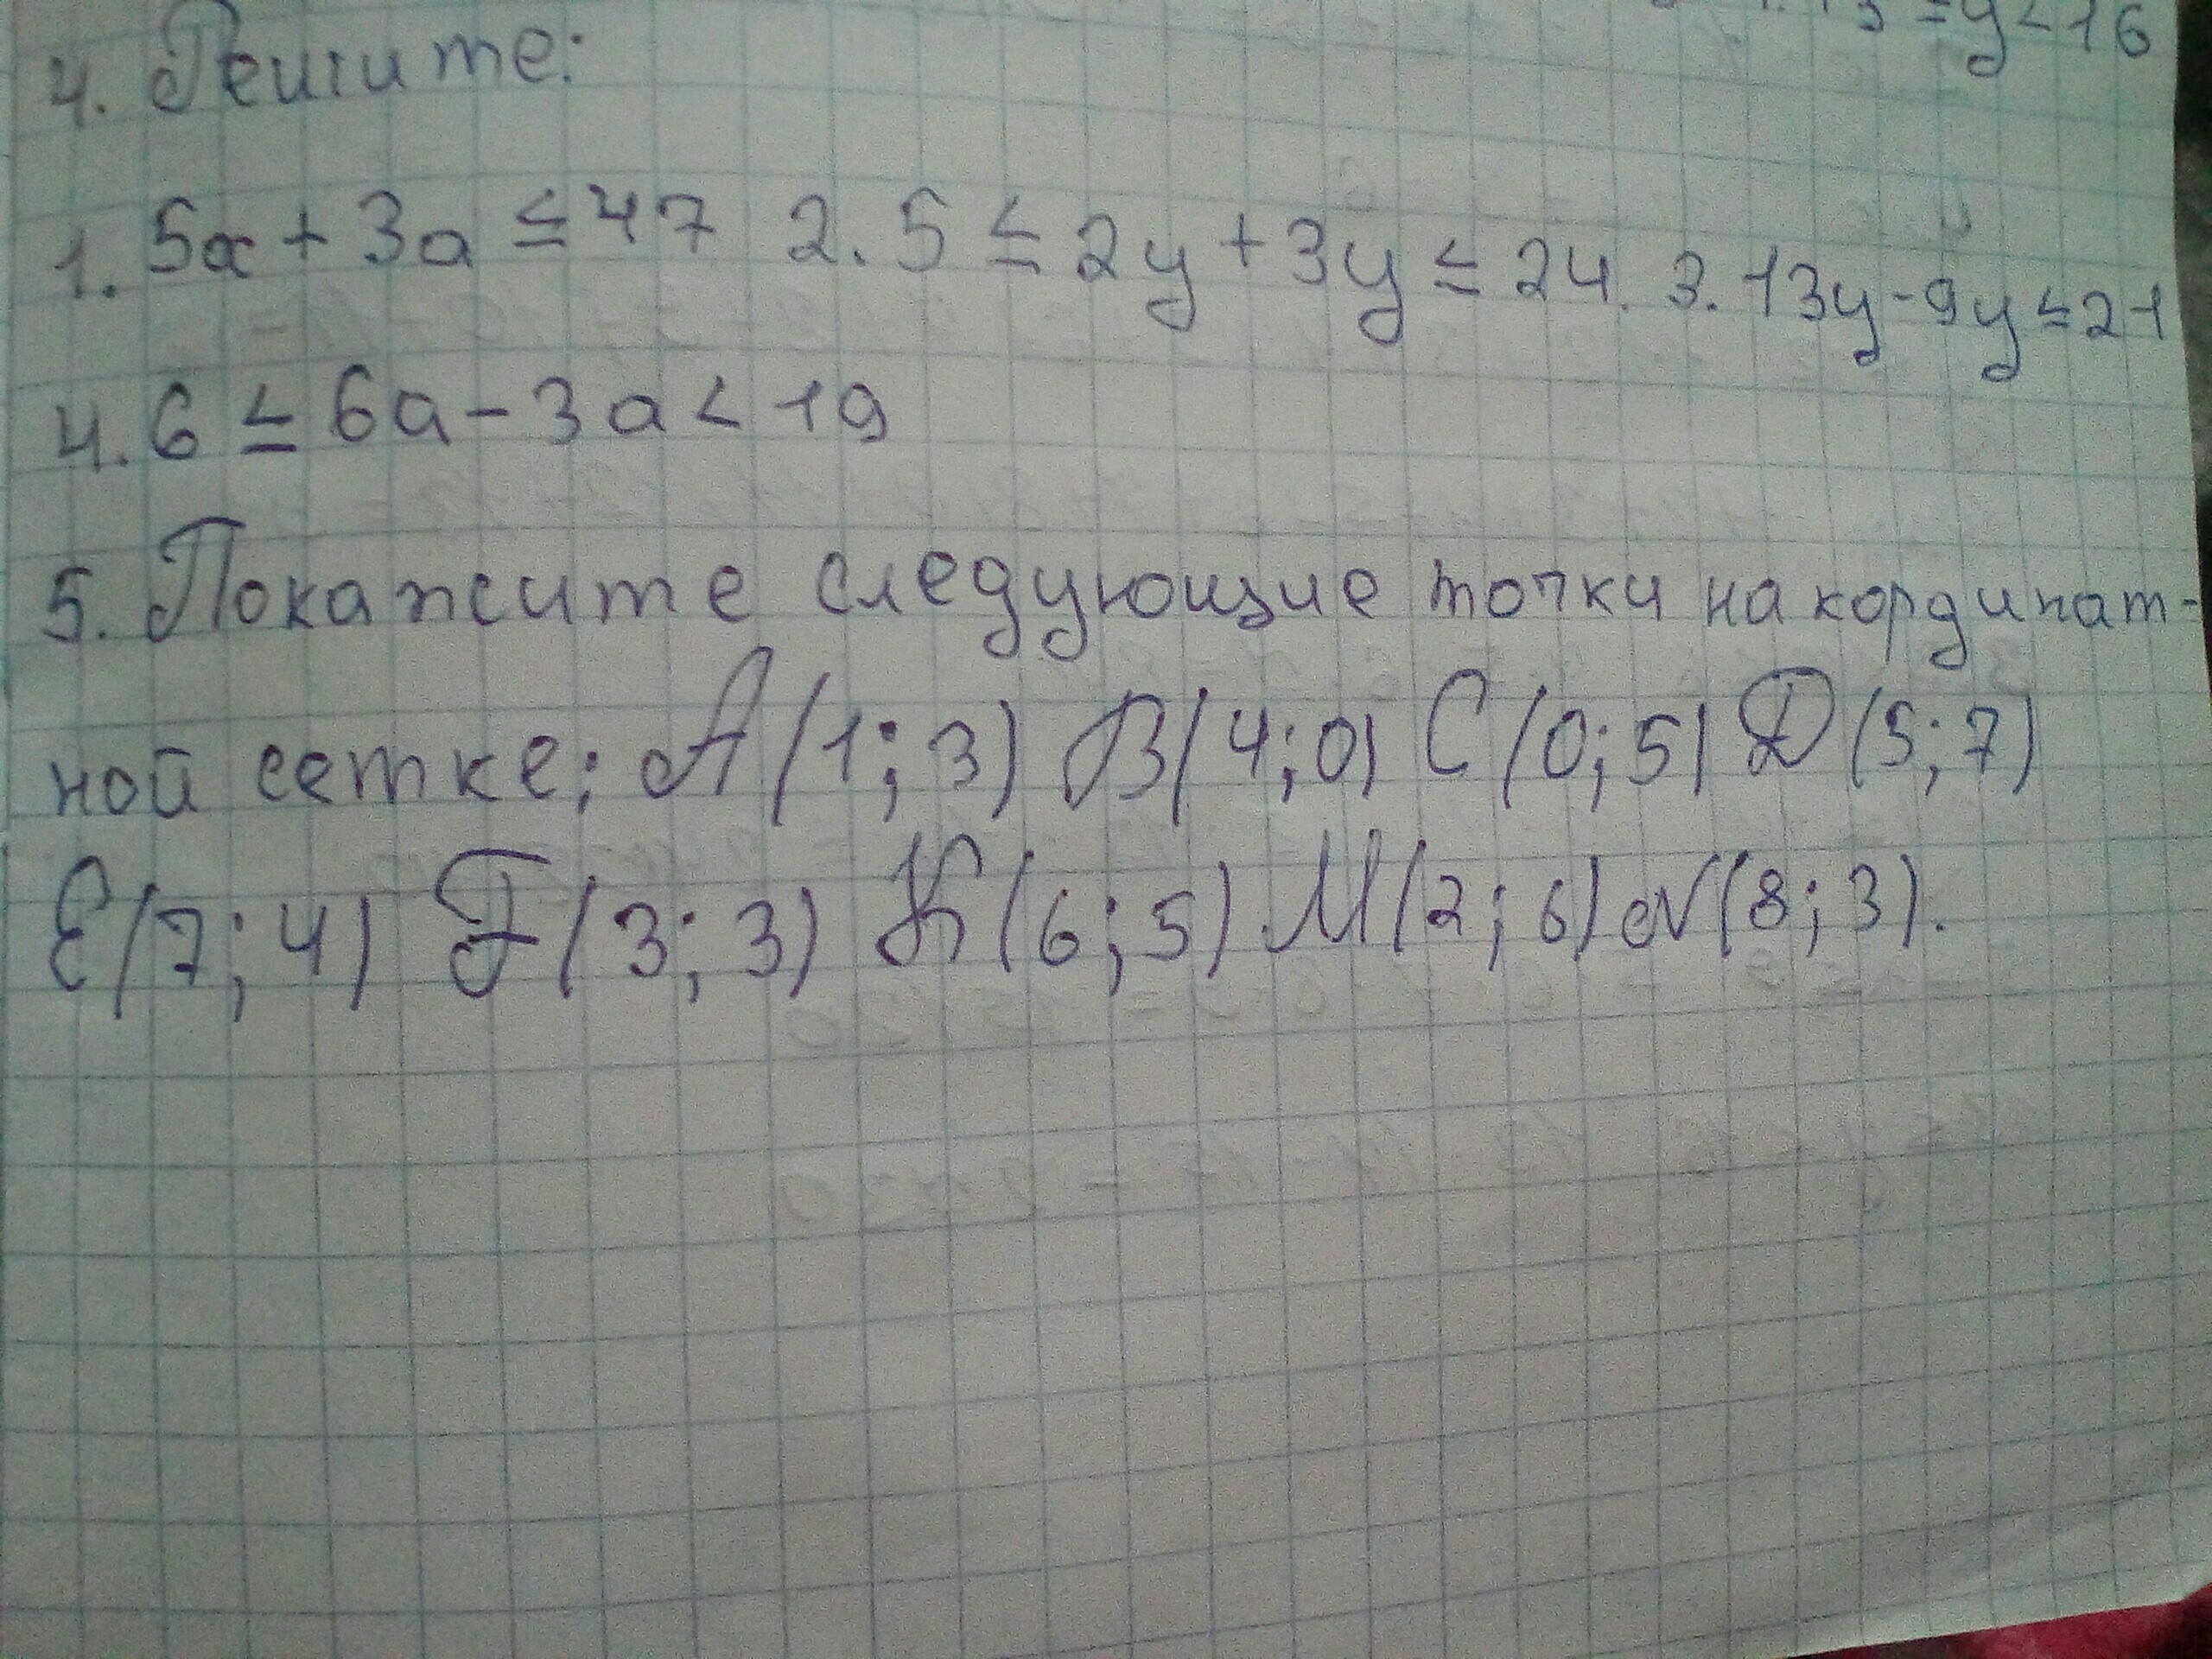 ≤y<16
4. Решите:
1. 5a + 3a ≤ 47 2. 5 ≤ 2y + 3y ≤ 24. 3. 13y - 9y ≤ 21
4. 6 ≤ 6a - 3a < 19
5. Покажите следующие точки на кординат-
ной сетке: A(1; 3) B(4; 0) C(0; 5) Д(5; 7)
E(7; 4) F(3; 3) K(6; 5) M(2; 6) N(8; 3).